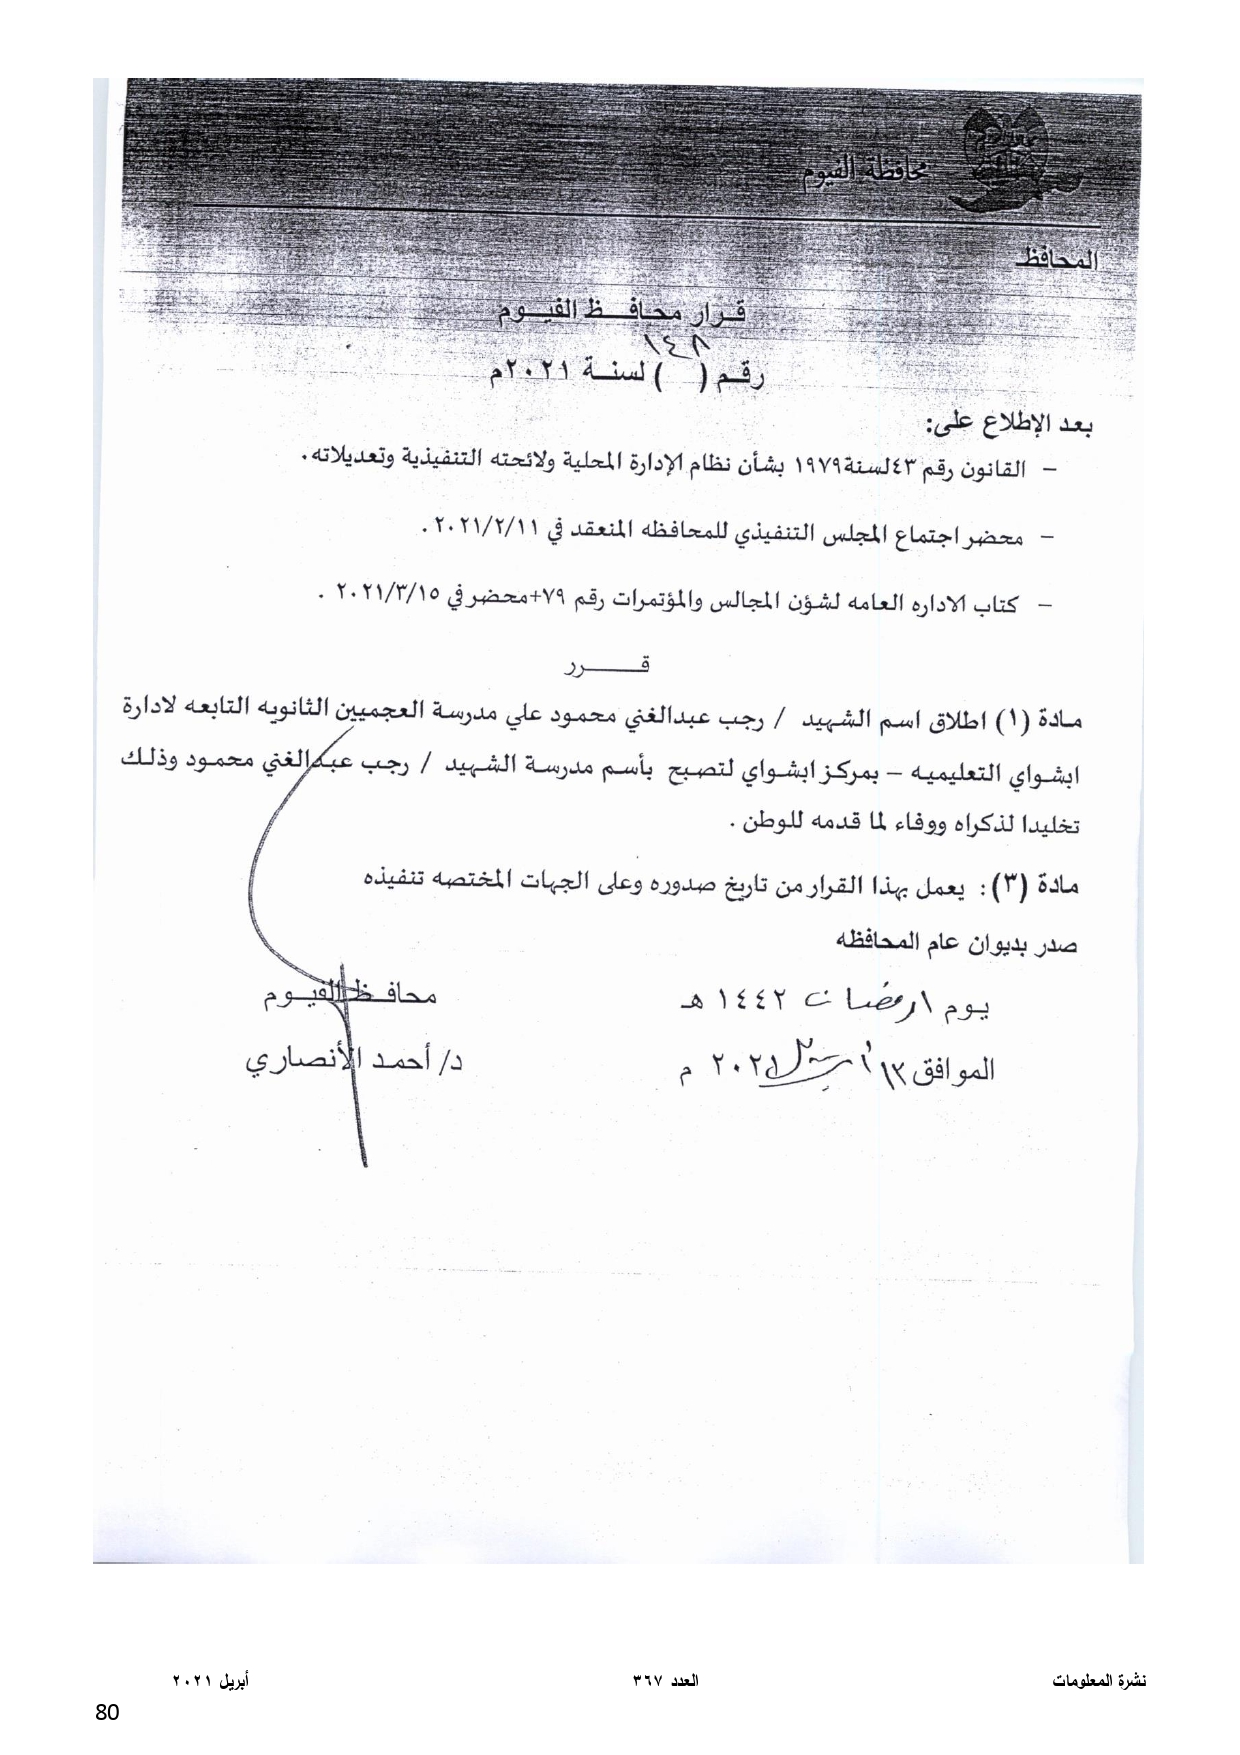 محافظة الفيوم
المحافظ
قرار محافظ الفيوم
١٤٨
رقم ( ) لسنة ٢٠٢١م
بعد الإطلاع على:
– القانون رقم ٤٣لسنة١٩٧٩ بشأن نظام الإدارة المحلية ولائحته التنفيذية وتعديلاته.
– محضر اجتماع المجلس التنفيذي للمحافظه المنعقد في ٢٠٢١/٢/١١ .
– كتاب الاداره العامه لشؤن المجالس والمؤتمرات رقم ٧٩+محضر في ٢٠٢١/٣/١٥ .
قرر
مادة (١) اطلاق اسم الشهيد / رجب عبدالغني محمود علي مدرسة العجميين الثانويه التابعه لادارة
ابشواي التعليميه – بمركز ابشواي لتصبح بأسم مدرسة الشهيد / رجب عبدالغني محمود وذلك
تخليدا لذكراه ووفاء لما قدمه للوطن .
مادة (٣): يعمل بهذا القرار من تاريخ صدوره وعلى الجهات المختصه تنفيذه
صدر بديوان عام المحافظه
يوم ١ رمضان ١٤٤٢ هـ محافظ الفيوم
الموافق ١٣ ابريل ٢٠٢١ م د/ أحمد الأنصاري
نشرة المعلومات العدد ٣٦٧ أبريل ٢٠٢١
80